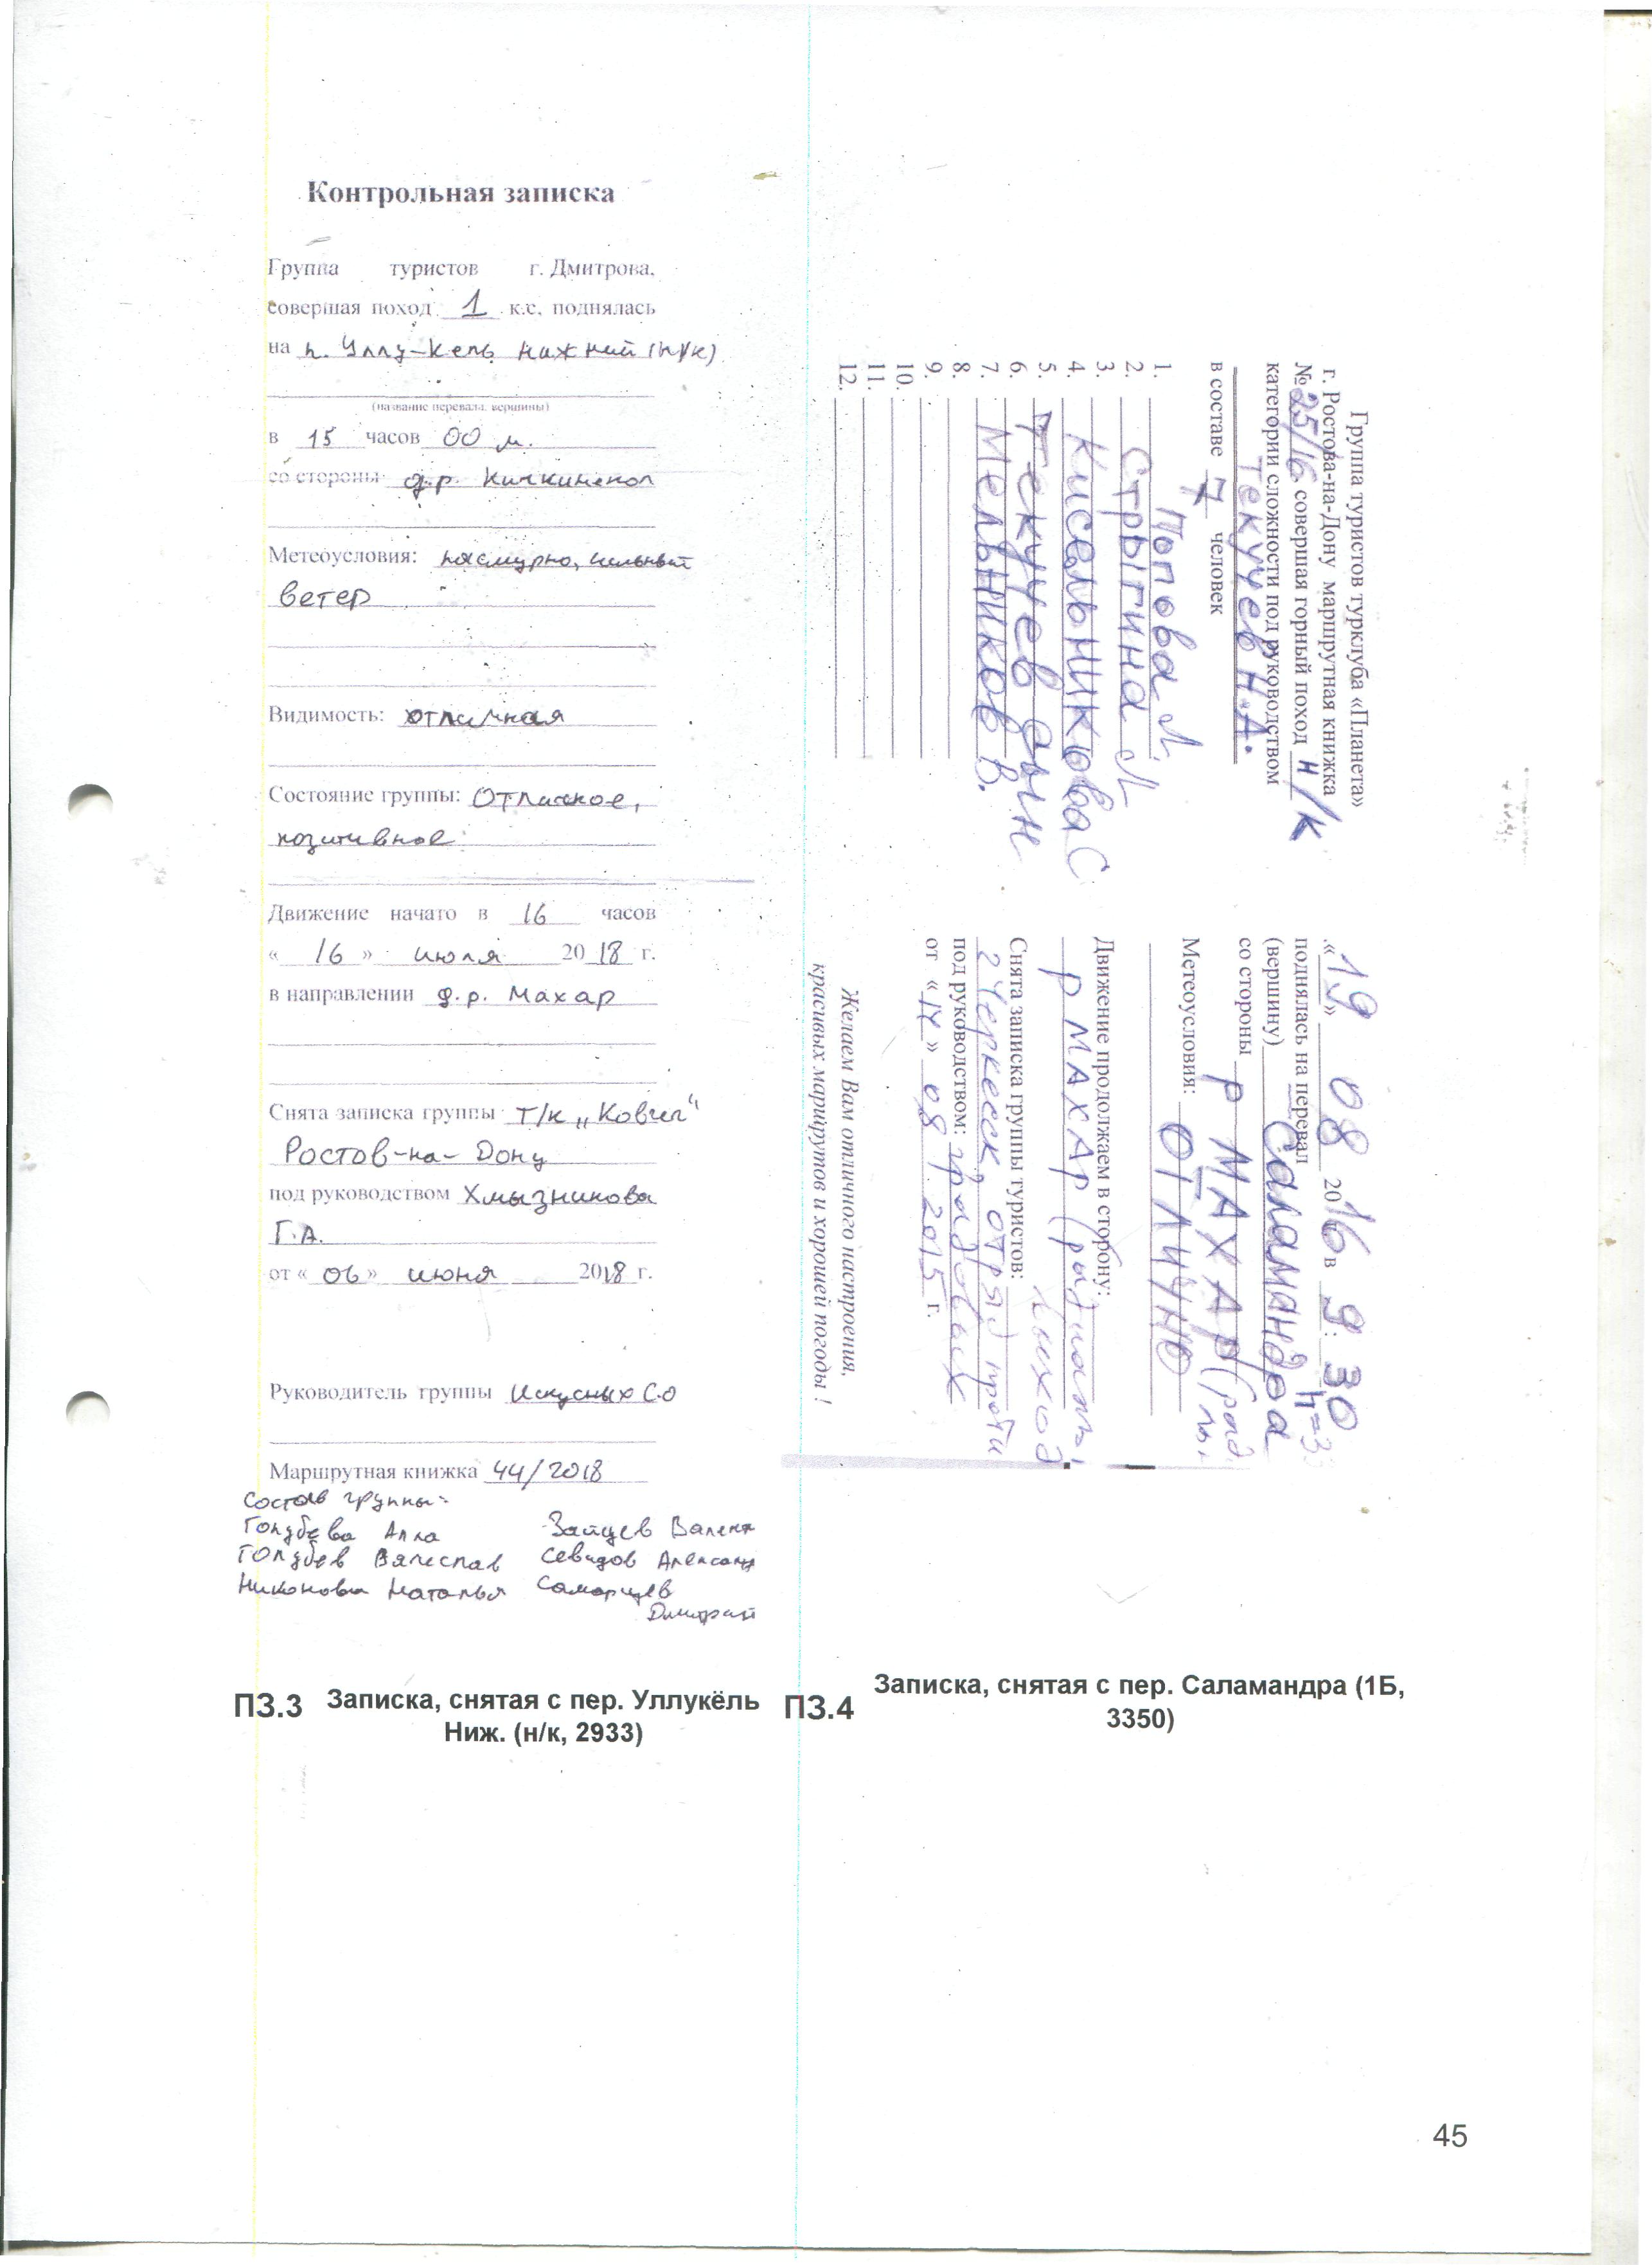 Контрольная записка
Группа туристов г. Дмитрова,
совершая поход 1 к.с. поднялась
на п. Уллу-Кель Нижний (н/к)
(название перевала, вершины)
в 15 часов 00 м.
со стороны д.р. Кичкинекол
Метеоусловия: пасмурно, сильный
ветер
Видимость: отличная
Состояние группы: Отличное,
позитивное
Движение начато в 16 часов
« 16 » июля 2018 г.
в направлении д.р. Махар
Снята записка группы Т/к „Ковчег“
Ростов-на-Дону
под руководством Хмызникова
Г.А.
от « 06 » июня 2018 г.
Руководитель группы Искусных С.О
Маршрутная книжка 44/2018
Состав группы:
Голубева Алла
Голубев Вячеслав
Никонова Наталья
Зайцев
Севидов
Самарцев
Дмитрий
ПЗ.3 Записка, снятая с пер. Уллукёль
Ниж. (н/к, 2933)
Группа туристов турклуба «Планета»
г. Ростова-на-Дону маршрутная книжка
№ 25/16 совершая горный поход н/к
категории сложности под руководством
Текучев Н.А.
в составе 7 человек
1. Попова Л.
2. Стрыгина Л
3.
4. Кисельникова С
5.
6. Текучев
7. Мельников В.
8.
9.
10.
11.
12.
«19» 08 2016 в 9:30
поднялась на перевал
(вершину) Саламандра
со стороны р МАХАР
Метеоусловия: ОТЛИЧНО
Движение продолжаем в сторону:
р МАХАР
Снята записка группы туристов:
г Черкесск, отряд
под руководством:
от «14» 08 2015 г.
Желаем Вам отличного настроения,
красивых маршрутов и хорошей погоды !
ПЗ.4 Записка, снятая с пер. Саламандра (1Б,
3350)
45